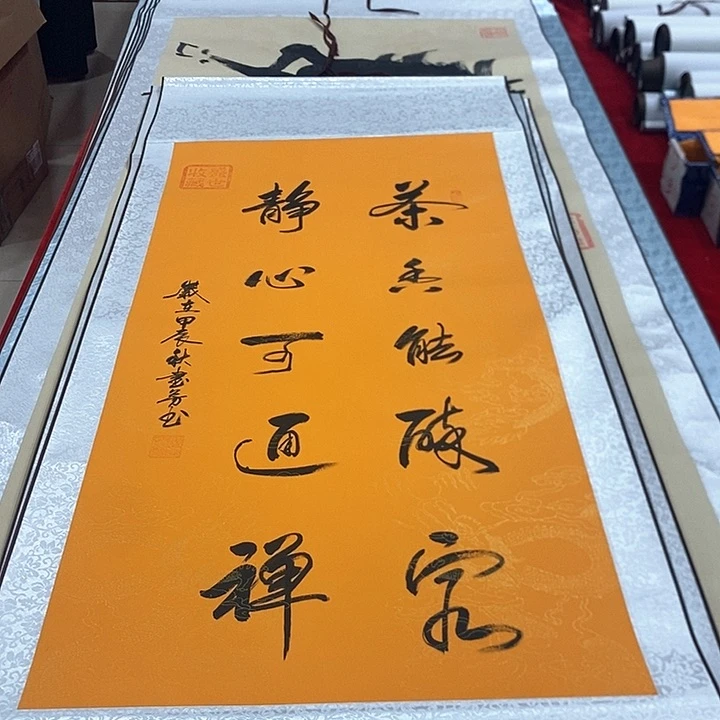 茶香能醉客
静心可通禅
岁在甲辰秋